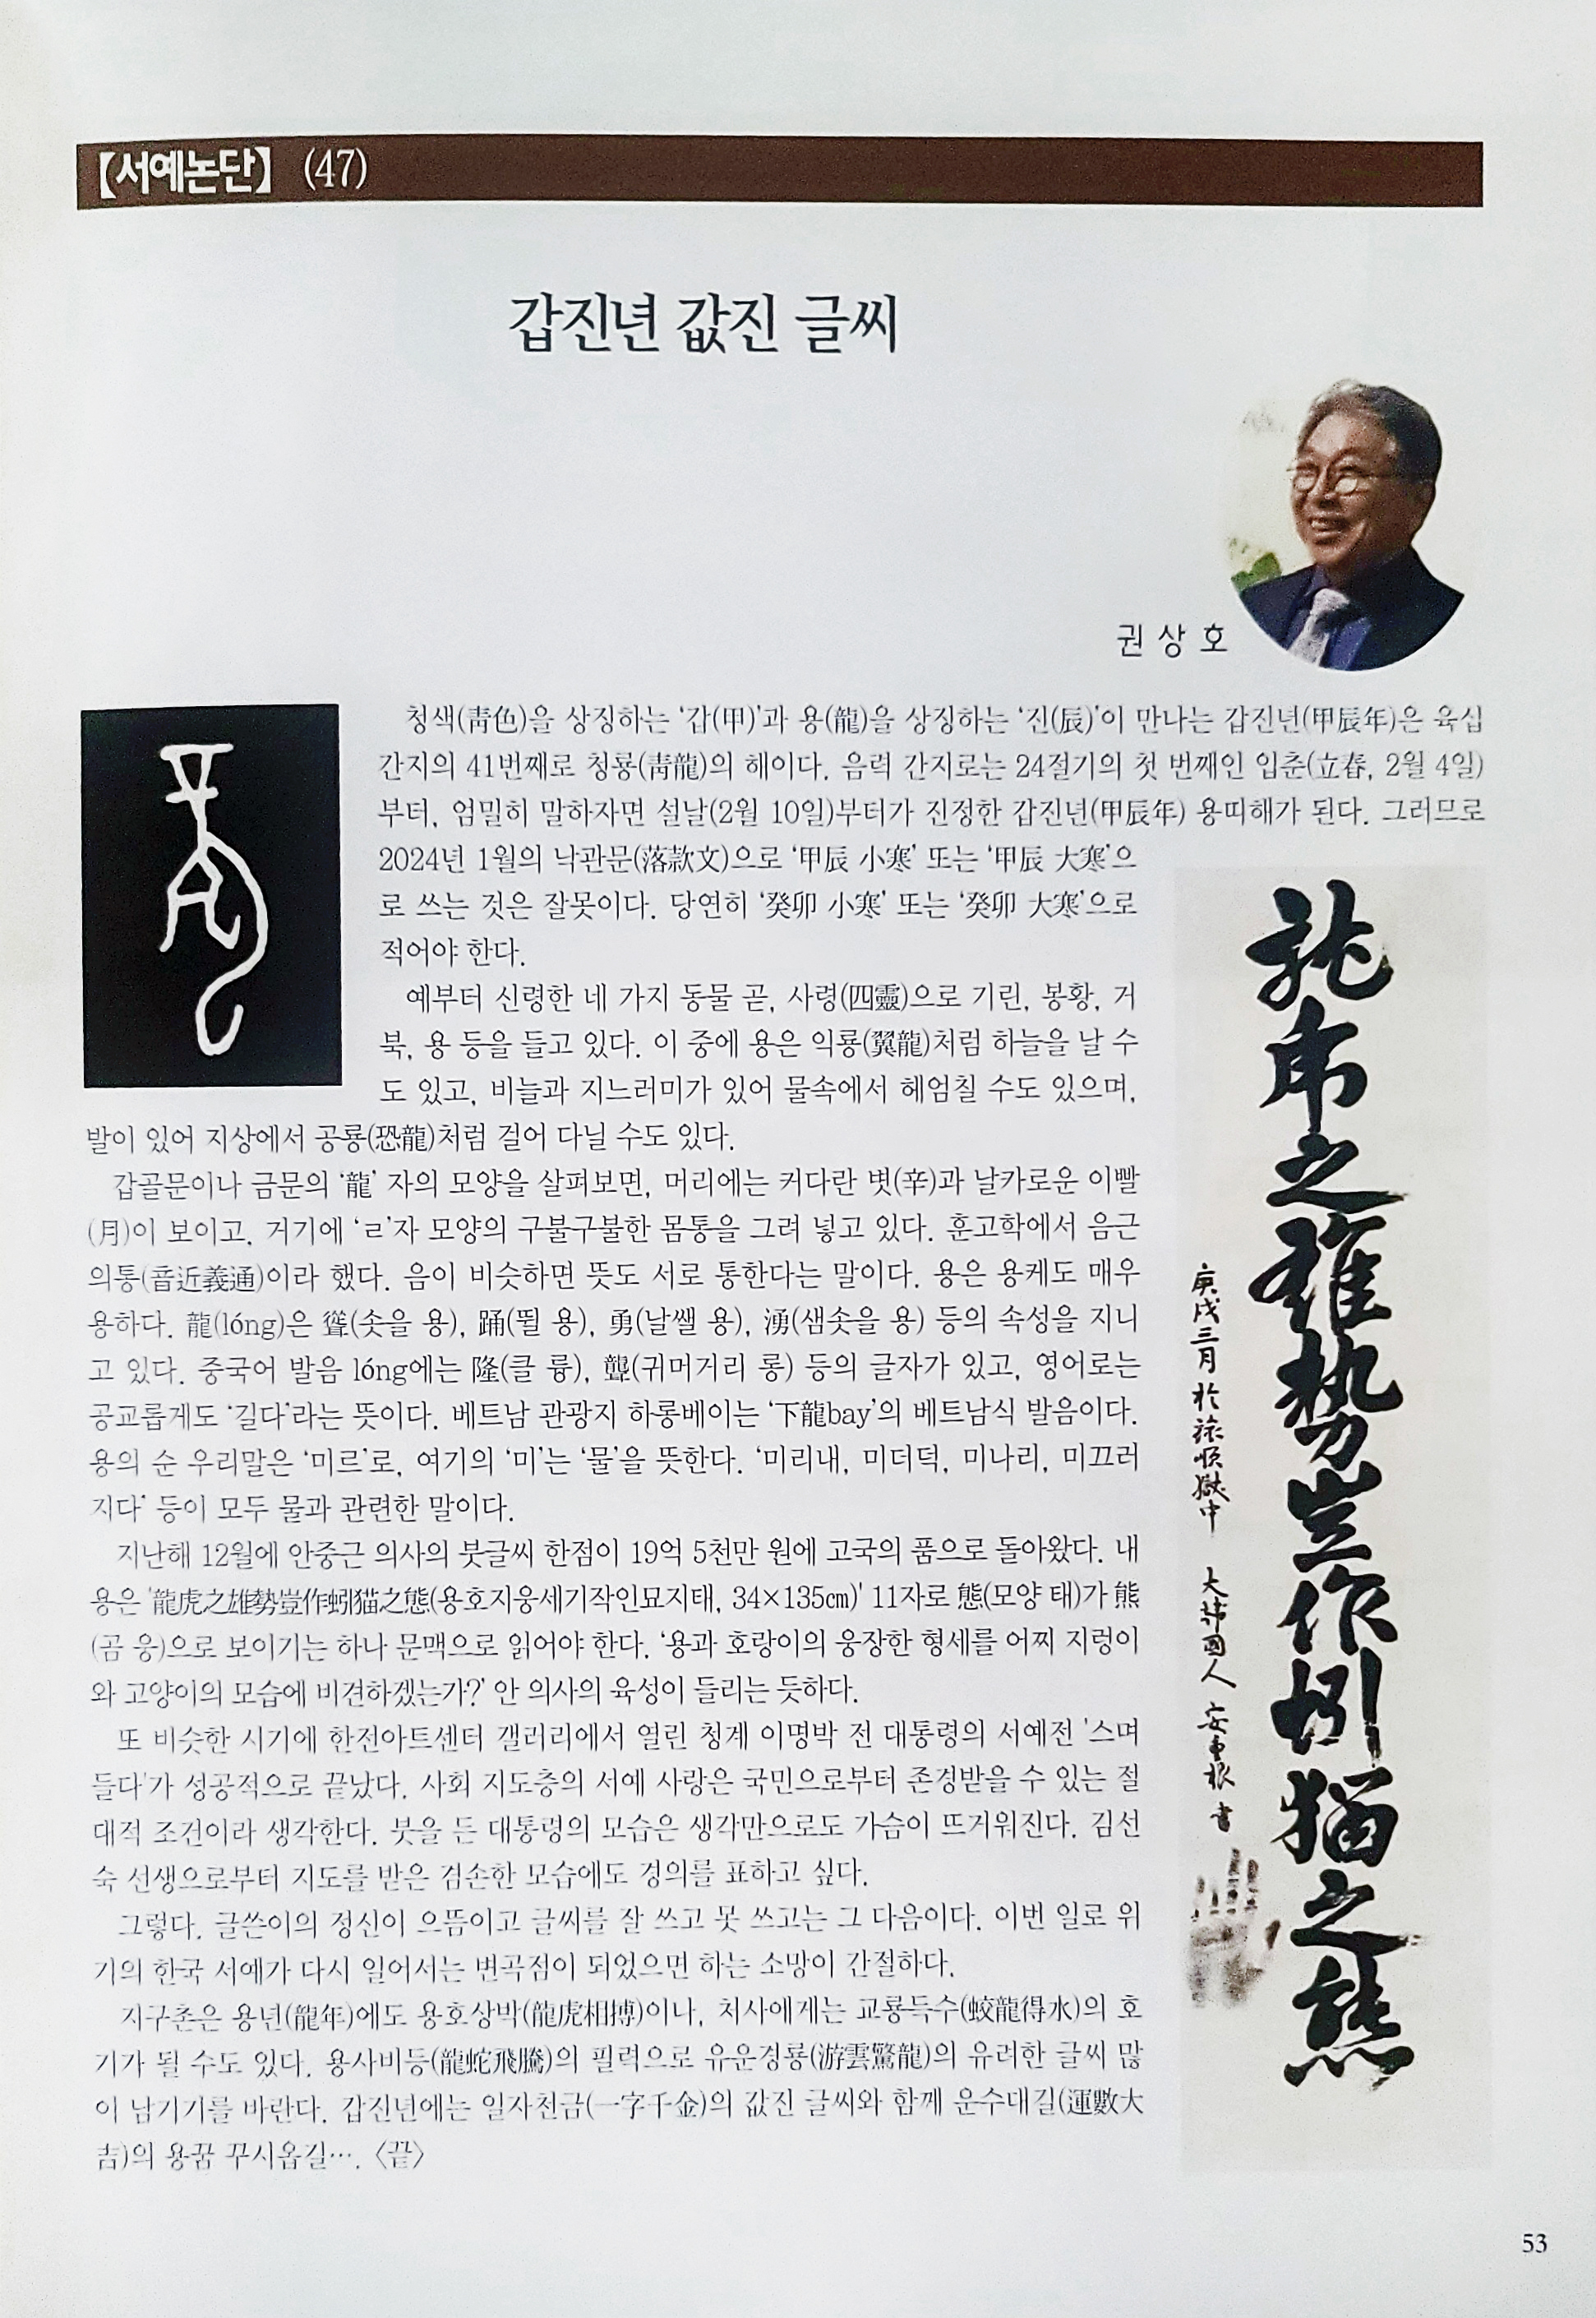 【서예논단】 (47)
갑진년 값진 글씨
권 상 호
청색(靑色)을 상징하는 ‘갑(甲)’과 용(龍)을 상징하는 ‘진(辰)’이 만나는 갑진년(甲辰年)은 육십
간지의 41번째로 청룡(靑龍)의 해이다. 음력 간지로는 24절기의 첫 번째인 입춘(立春, 2월 4일)
부터, 엄밀히 말하자면 설날(2월 10일)부터가 진정한 갑진년(甲辰年) 용띠해가 된다. 그러므로
2024년 1월의 낙관문(落款文)으로 ‘甲辰 小寒’ 또는 ‘甲辰 大寒’으
로 쓰는 것은 잘못이다. 당연히 ‘癸卯 小寒’ 또는 ‘癸卯 大寒’으로
적어야 한다.
예부터 신령한 네 가지 동물 곧, 사령(四靈)으로 기린, 봉황, 거
북, 용 등을 들고 있다. 이 중에 용은 익룡(翼龍)처럼 하늘을 날 수
도 있고, 비늘과 지느러미가 있어 물속에서 헤엄칠 수도 있으며,
발이 있어 지상에서 공룡(恐龍)처럼 걸어 다닐 수도 있다.
갑골문이나 금문의 ‘龍’ 자의 모양을 살펴보면, 머리에는 커다란 볏(辛)과 날카로운 이빨
(月)이 보이고, 거기에 ‘ㄹ’자 모양의 구불구불한 몸통을 그려 넣고 있다. 훈고학에서 음근
의통(音近義通)이라 했다. 음이 비슷하면 뜻도 서로 통한다는 말이다. 용은 용케도 매우
용하다. 龍(lóng)은 聳(솟을 용), 踊(뛸 용), 勇(날쌜 용), 湧(샘솟을 용) 등의 속성을 지니
고 있다. 중국어 발음 lóng에는 隆(클 륭), 聾(귀머거리 롱) 등의 글자가 있고, 영어로는
공교롭게도 ‘길다’라는 뜻이다. 베트남 관광지 하롱베이는 ‘下龍bay’의 베트남식 발음이다.
용의 순 우리말은 ‘미르’로, 여기의 ‘미’는 ‘물’을 뜻한다. ‘미리내, 미더덕, 미나리, 미끄러
지다’ 등이 모두 물과 관련한 말이다.
지난해 12월에 안중근 의사의 붓글씨 한점이 19억 5천만 원에 고국의 품으로 돌아왔다. 내
용은 '龍虎之雄勢豈作蚓猫之態(용호지웅세기작인묘지태, 34×135㎝)' 11자로 態(모양 태)가 熊
(곰 웅)으로 보이기는 하나 문맥으로 읽어야 한다. ‘용과 호랑이의 웅장한 형세를 어찌 지렁이
와 고양이의 모습에 비견하겠는가?’ 안 의사의 육성이 들리는 듯하다.
또 비슷한 시기에 한전아트센터 갤러리에서 열린 청계 이명박 전 대통령의 서예전 '스며
들다'가 성공적으로 끝났다. 사회 지도층의 서예 사랑은 국민으로부터 존경받을 수 있는 절
대적 조건이라 생각한다. 붓을 든 대통령의 모습은 생각만으로도 가슴이 뜨거워진다. 김선
숙 선생으로부터 지도를 받은 겸손한 모습에도 경의를 표하고 싶다.
그렇다. 글쓴이의 정신이 으뜸이고 글씨를 잘 쓰고 못 쓰고는 그 다음이다. 이번 일로 위
기의 한국 서예가 다시 일어서는 변곡점이 되었으면 하는 소망이 간절하다.
지구촌은 용년(龍年)에도 용호상박(龍虎相搏)이나, 처사에게는 교룡득수(蛟龍得水)의 호
기가 될 수도 있다. 용사비등(龍蛇飛騰)의 필력으로 유운경룡(游雲驚龍)의 유려한 글씨 많
이 남기기를 바란다. 갑진년에는 일자천금(一字千金)의 값진 글씨와 함께 운수대길(運數大
吉)의 용꿈 꾸시옵길…. 〈끝〉
龍虎之雄勢豈作蚓猫之態
庚戌三月 於旅順獄中 大韓國人 安重根 書
53